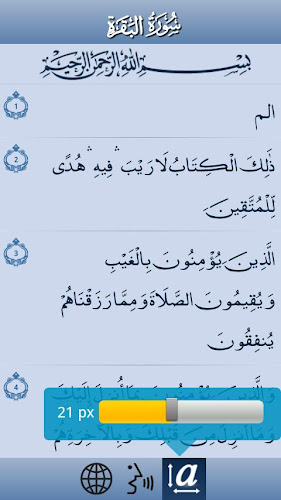 سُورَةُ البَقَرَةِ
بِسْمِ اللهِ الرَّحْمَنِ الرَّحِيمِ
1
الم
2
ذَلِكَ الْكِتَابُ لَا رَيْبَ ۛ فِيهِ ۛ هُدًى
لِّلْمُتَّقِينَ
3
الَّذِينَ يُؤْمِنُونَ بِالْغَيْبِ
وَيُقِيمُونَ الصَّلَاةَ وَمِمَّا رَزَقْنَاهُمْ
يُنفِقُونَ
4
وَالَّذِينَ يُؤْمِنُونَ بِمَا أُنزِلَ إِلَيْكَ
وَمَا أُنزِلَ مِن قَبْلِكَ وَبِالْآخِرَةِ هُمْ
21 px
a